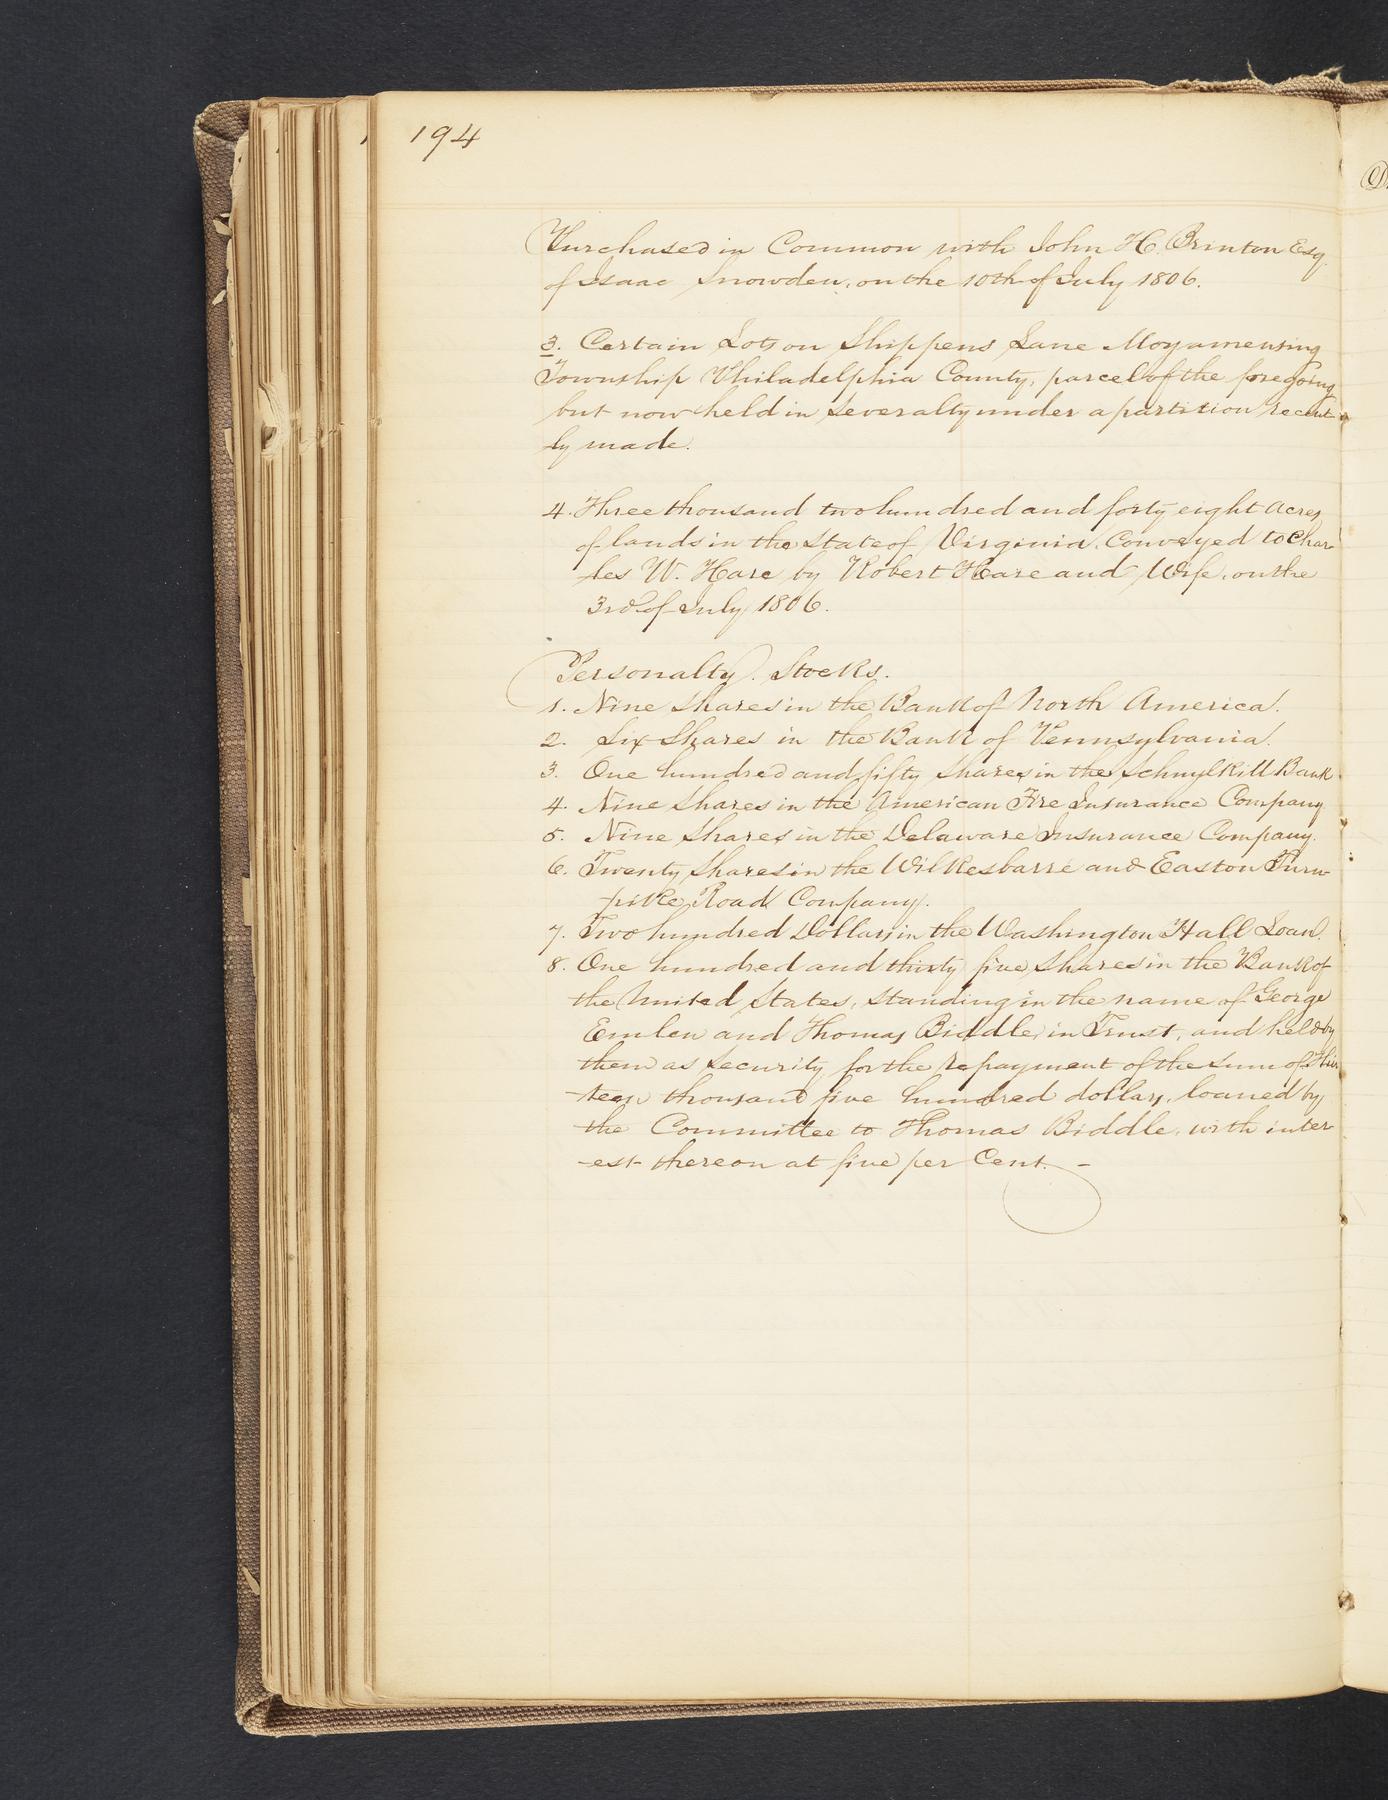 194
Purchased in Common with John H. Brinton Esq.
of Isaac Snowden, on the 10th of July 1806.
3. Certain Lots on Shippens Lane Moyamensing
Township Philadelphia County, parcel of the foregoing
but now held in severalty under a partition recent
ly made.
4. Three thousand two hundred and forty eight Acres
of lands in the state of Virginia. Conveyed to Char-
les W. Hare by Robert Hare and Wife, on the
3rd of July 1806.
Personalty. Stocks.
1. Nine Shares in the Bank of North America.
2. Six Shares in the Bank of Pennsylvania.
3. One hundred and fifty Shares in the Schuylkill Bank
4. Nine Shares in the American Fire Insurance Company
5. Nine Shares in the Delaware Insurance Company.
6. Twenty Shares in the Wilkesbarre and Easton Turn-
pike Road Company.
7. Two hundred Dollars in the Washington Hall Loan.
8. One hundred and thirty five Shares in the Bank of
the United States, standing in the name of George
Emlen and Thomas Biddle, in Trust, and held by
them as security for the repayment of the sum of Thir
-teen thousand five hundred dollars, loaned by
the Committee to Thomas Biddle, with inter-
-est thereon at five per Cent. -